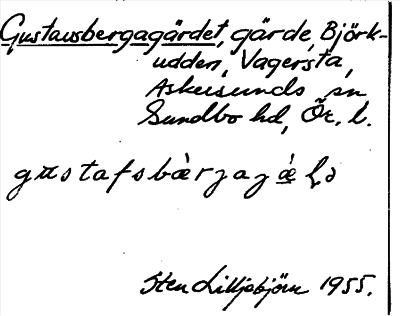 Gustavsbergagärdet, gärde, Björk-
udden, Vagersta,
Askersunds sn
Sundbo hd, Ör. l.
Sten Lilljebjörn 1955.